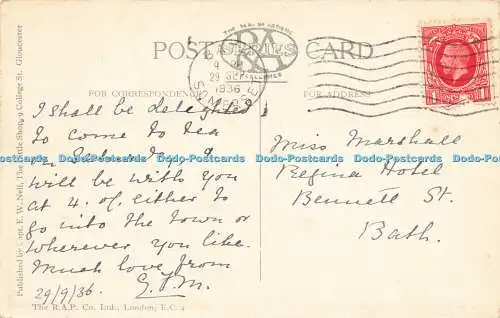 POST CARD
THE SEAL OF ARTISTIC
RA
EXCELLENCE
29 SE
1936
SOMERSET
FOR CORRESPONDENCE
FOR ADDRESS
I shall be delighted
to come to tea
on Saturday, &
will be with you
at 4. o/. either to
go into the town or
wherever you like.
Much love from
29/9/36 G.F.M.
Miss Marshall
Regina Hotel
Bennett St.
Bath.
1 1
Published by Capt. E. W. Neil, The Little Shop, 9 College St. Gloucester
The R.A.P. Co. Ltd., London, E.C.4
Dodo-Postcards Dodo-Postcards Dodo-Postcards Dodo-Postcards Dodo-Postcards